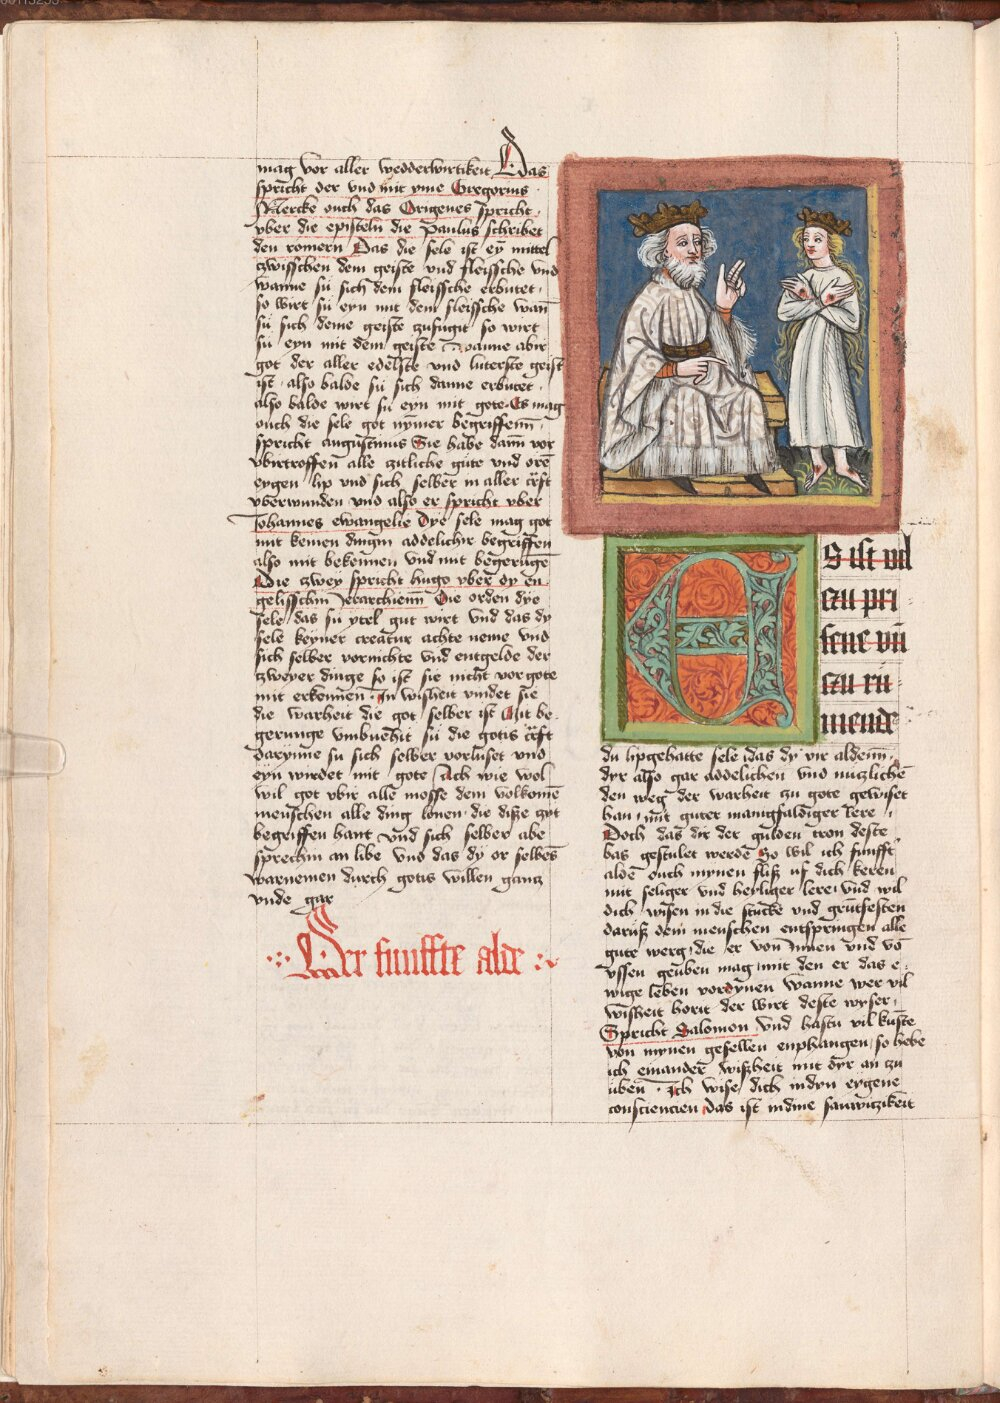 mag vor aller wedderwirtikeit Das
spricht der vnd mit yme Gregorius
Mercke ouch das Origenes spricht
vber die episteln die Paulus schribet
den romern Das die sele ist eȳ mittel
zwisschen dem geiste vnd fleissche vnd
wanne su sich dem fleissche erbutet
so wirt su eyn mit dem fleissche wan
su sich deme geiste zufugit so wirt
su eyn mit dem geiste Wanne abir
got der aller edelste vnd luterste geist
ist also balde su sich danne erbutet
also balde wirt su eyn mit gote Es mag
ouch die sele got nȳmer begriffenn
spricht augustinus Sie habe dann vor
vbirtroffen alle zitliche gute vnd orē
eygen lip vnd sich selber in aller crft
vberwunden vnd also er spricht vber
Johannes ewangelie Dye sele mag got
mit keinen dingen addelicher begriffen
also mit bekennen vnd mit begerunge
Die zwey spricht hugo vber dy en
gelisschin Jerarchienn Die orden dye
sele das su ytel gut wirt vnd das dy
sele keyner creatur achte neme vnd
sich selber vornichte vnd entgelde der
zweyer dinge so ist sie nicht vor gote
mit erkennen In wisheit vindet sie
die warheit die got selber ist Mit be
gerunge vmbuehit su die gotis crft
dareynne su sich selber vorluset vnd
eyn wirdet mit gote Ach wie wol
wil got vbir alle mosse dem volkomē
menschen alle ding lonen die disze zyt
begriffen hant vnd sich selber abe
sprechin an libe vnd das dy or selbes
warnemen durch gotis willen gantz
vnde gar
Der funffte alde
ES ist vil
czu pri
sene vn
czu ru
mende
du lipgehatte sele das dy vir aldenn
dyr also gar addelichen vnd nuczlichē
den weg der warheit zu gote gewiset
han mit guter manigfaldiger lere
Doch das dir der gulden tron deste
bas gestulet werde So wil ich funfft
alde ouch mynen flisz uf dich keren
mit seliger vnd heyliger lere vnd wil
dich wisen in die stucke vnd gruntfesten
darusz dem menschen entspringen alle
gute werg die er von Innen vnd vō
vssen geuben mag mit den er das e
wige leben vordynen Wanne wer vil
wisheit horit der wirt deste wyser
Spricht Salomon vnd hastu vil kunste
von mynen gesellen enphangen so hebe
ich einander wiszheit mit dyr an zu
uben Ich wise dich in dyn eygene
consciencien das ist in dine sanwiczikeit